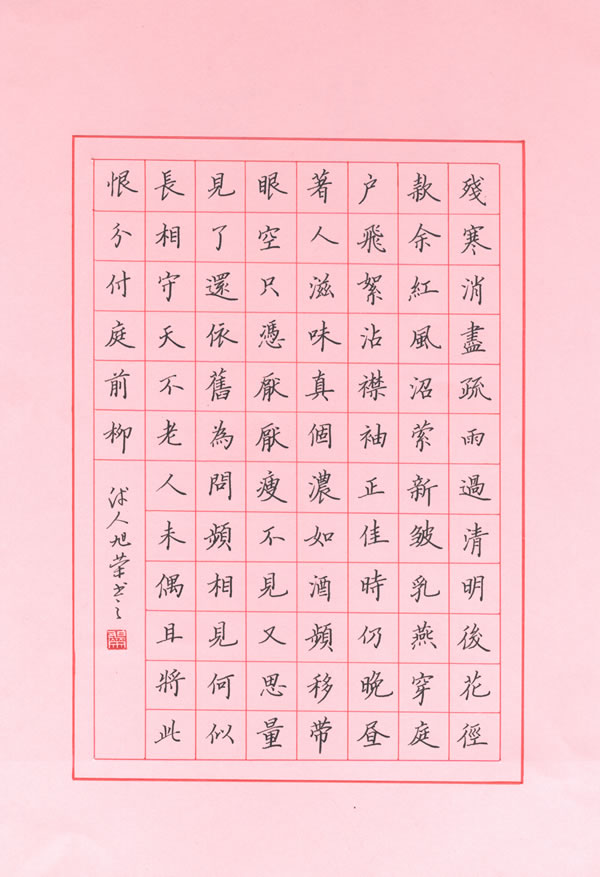 殘寒消盡疏雨過清明後花徑
款余紅風沼萦新皺乳燕穿庭
户飛絮沾襟袖正佳時仍晚昼
著人滋味真個濃如酒頻移带
眼空只憑厭厭瘦不見又思量
見了還依舊為問頻相見何似
長相守天不老人未偶且將此
恨分付庭前柳
人旭荣书之